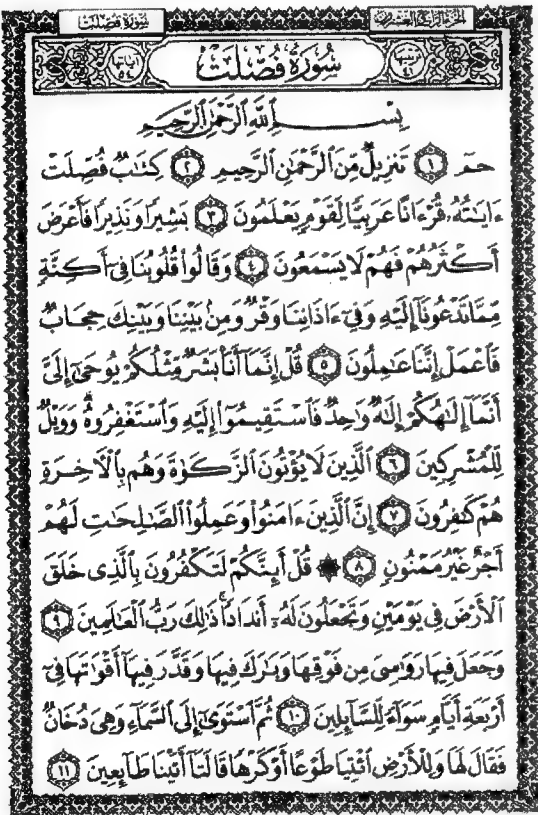 سُورَةُ فُصِّلَتْ الجُزءُ الرَّابِعُ وَالعِشْرُونَ
آيَاتُهَا ٥٤ سُورَةُ فُصِّلَتْ تَرْتِيبُهَا ٤١
بِسْمِ ٱللَّهِ ٱلرَّحْمَٰنِ ٱلرَّحِيمِ
حمٓ ١ تَنزِيلٌ مِّنَ ٱلرَّحْمَٰنِ ٱلرَّحِيمِ ٢ كِتَٰبٌ فُصِّلَتْ
ءَايَٰتُهُۥ قُرْءَانًا عَرَبِيًّا لِّقَوْمٍ يَعْلَمُونَ ٣ بَشِيرًا وَنَذِيرًا فَأَعْرَضَ
أَكْثَرُهُمْ فَهُمْ لَا يَسْمَعُونَ ٤ وَقَالُوا۟ قُلُوبُنَا فِىٓ أَكِنَّةٍ
مِّمَّا تَدْعُونَآ إِلَيْهِ وَفِىٓ ءَاذَانِنَا وَقْرٌ وَمِنۢ بَيْنِنَا وَبَيْنِكَ حِجَابٌ
فَٱعْمَلْ إِنَّنَا عَٰمِلُونَ ٥ قُلْ إِنَّمَآ أَنَا۠ بَشَرٌ مِّثْلُكُمْ يُوحَىٰٓ إِلَىَّ
أَنَّمَآ إِلَٰهُكُمْ إِلَٰهٌ وَٰحِدٌ فَٱسْتَقِيمُوٓا۟ إِلَيْهِ وَٱسْتَغْفِرُوهُ ۗ وَوَيْلٌ
لِّلْمُشْرِكِينَ ٦ ٱلَّذِينَ لَا يُؤْتُونَ ٱلزَّكَوٰةَ وَهُم بِٱلْءَاخِرَةِ
هُمْ كَٰفِرُونَ ٧ إِنَّ ٱلَّذِينَ ءَامَنُوا۟ وَعَمِلُوا۟ ٱلصَّٰلِحَٰتِ لَهُمْ
أَجْرٌ غَيْرُ مَمْنُونٍ ٨ ۞ قُلْ أَئِنَّكُمْ لَتَكْفُرُونَ بِٱلَّذِى خَلَقَ
ٱلْأَرْضَ فِى يَوْمَيْنِ وَتَجْعَلُونَ لَهُۥٓ أَندَادًا ۚ ذَٰلِكَ رَبُّ ٱلْعَٰلَمِينَ ٩
وَجَعَلَ فِيهَا رَوَٰسِىَ مِن فَوْقِهَا وَبَٰرَكَ فِيهَا وَقَدَّرَ فِيهَآ أَقْوَٰتَهَا فِىٓ
أَرْبَعَةِ أَيَّامٍ سَوَآءً لِّلسَّآئِلِينَ ١٠ ثُمَّ ٱسْتَوَىٰٓ إِلَى ٱلسَّمَآءِ وَهِىَ دُخَانٌ
فَقَالَ لَهَا وَلِلْأَرْضِ ٱئْتِيَا طَوْعًا أَوْ كَرْهًا قَالَتَآ أَتَيْنَا طَآئِعِينَ ١١